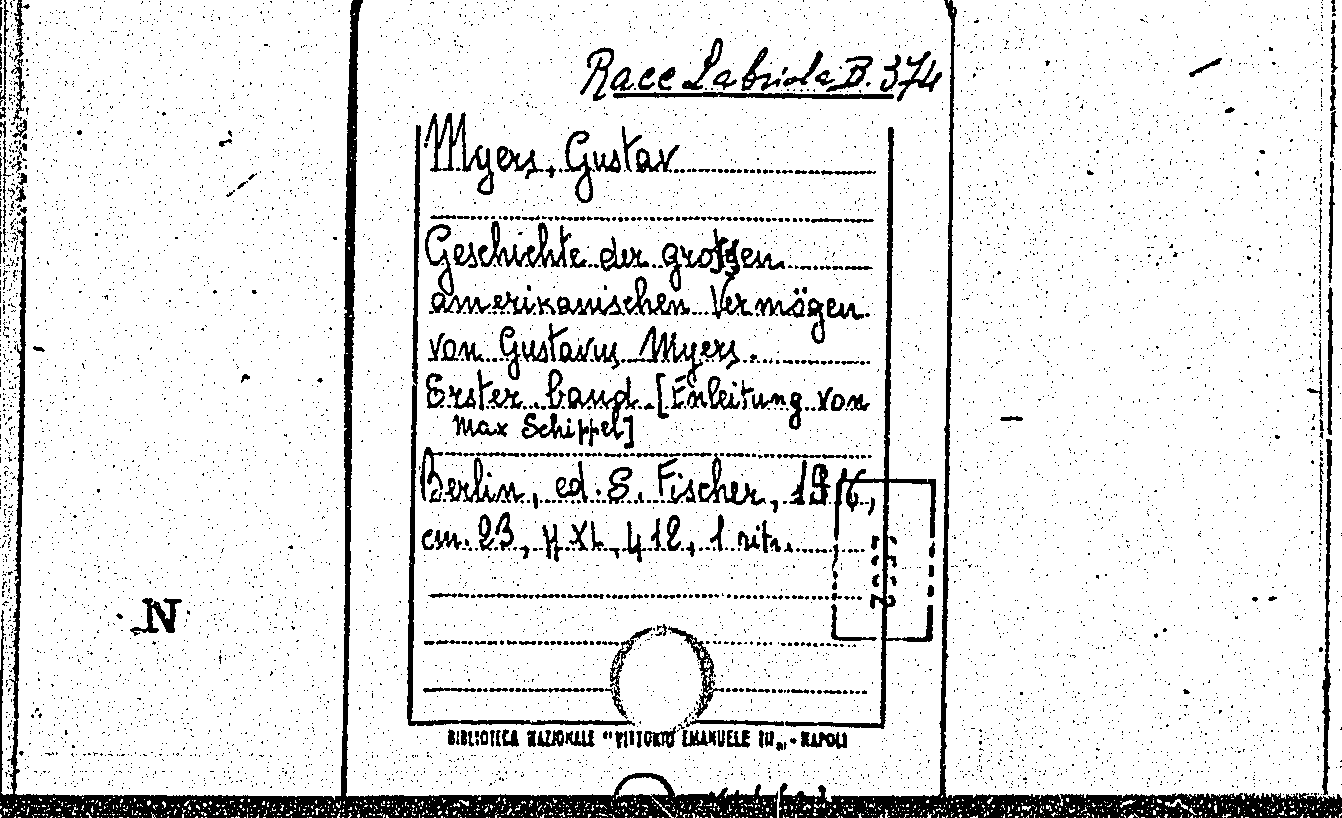 Racc Labriola B. 374
Myers, Gustav
Geschichte der grossen
amerikanischen Vermögen
von Gustavus Myers.
Erster band. [Einleitung von
Max Schippel]
Berlin, ed. S. Fischer, 1916,
cm. 23, p. XL, 412, 1 ritr.
N
BIBLIOTECA NAZIONALE "VITTORIO EMANUELE III" - NAPOLI